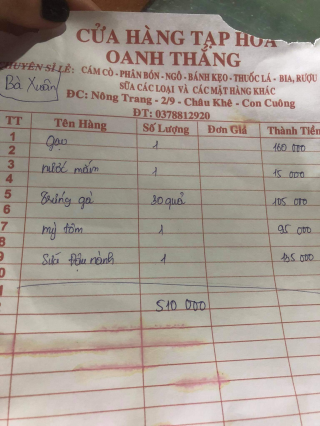 CỬA HÀNG TẠP HÓA
OANH THẮNG
CHUYÊN SỈ LẺ: CÁM CÒ - PHÂN BÓN - NGÔ - BÁNH KẸO - THUỐC LÁ - BIA, RƯỢU
SỮA CÁC LOẠI VÀ CÁC MẶT HÀNG KHÁC
Bà Xuân
ĐC: Nông Trang - 2/9 - Châu Khê - Con Cuông
ĐT: 0378812920
TT Tên Hàng Số Lượng Đơn Giá Thành Tiền
1 gạo 1 160 000
2
3 nước mắm 1 15 000
4
5 trứng gà 30 quả 105 000
6
7 mỳ tôm 1 95 000
8
9 Sữa đậu nành 1 135 000
0
1
510 000